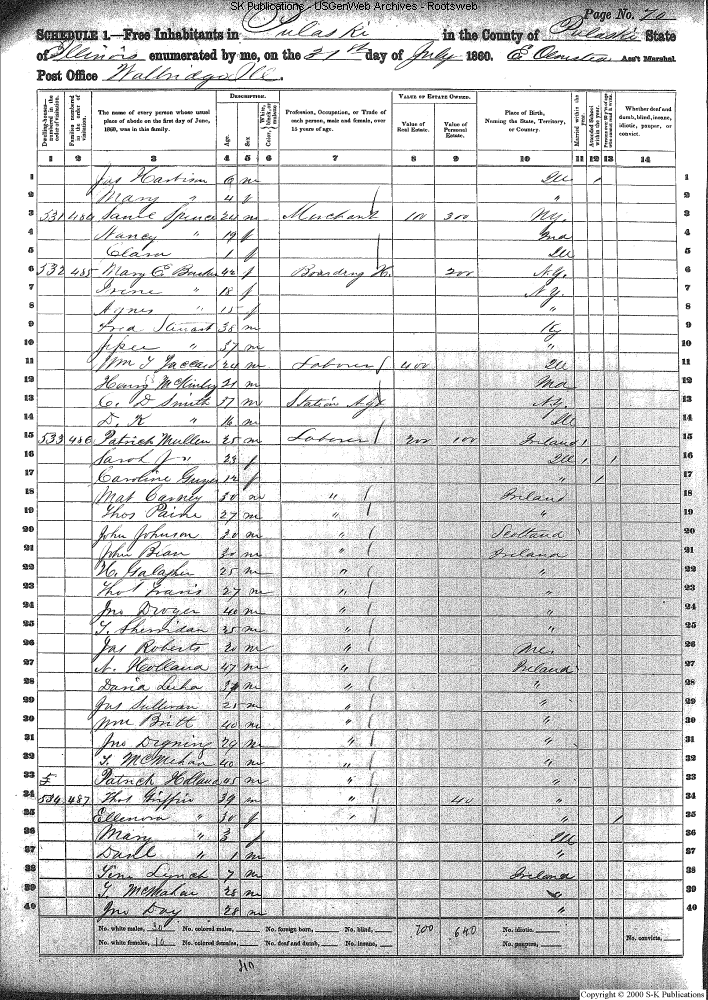 SK Publications - USGenWeb Archives - Rootsweb
Page No. 70
SCHEDULE 1.—Free Inhabitants in Pulaski in the County of Pulaski State
of Illinois enumerated by me, on the 21th day of July 1860. E Olmstea Ass't Marshal
Post Office
DESCRIPTION. VALUE OF ESTATE OWNED.
Dwelling-houses—numbered in the order of visitation. Families numbered in the order of visitation. The name of every person whose usual place of abode on the first day of June, 1860, was in this family. Age. Sex. Color, White, black, or mulatto. Profession, Occupation, or Trade of each person, male and female, over 15 years of age. Value of Real Estate. Value of Personal Estate. Place of Birth, Naming the State, Territory, or Country. Married within the year. Attended School within the year. Whether deaf and dumb, blind, insane, idiotic, pauper, or convict.
1 2 3 4 5 6 7 8 9 10 11 12 13 14
1 Jas Harbison 6 m Ill / 1
2 Mary " 4 f " 2
3 531 484 Spence 24 m Merchant 100 300 NY. 3
4 Nancy " 19 f 4
5 Clara 1 f Ill 5
6 532 485 Mary E 42 f Boarding H. 200 N.Y. 6
7 Irene " 18 f N.Y. 7
8 Agnes " 15 f " 8
9 Fred Stewart 38 m Ky 9
10 " 37 m " 10
11 Wm 24 m Laborer 400 Ill 11
12 Henry McKinley 21 m Md 12
13 C. D Smith 37 m Station Agt N.Y. 13
14 D. K " 16 m Ill 14
15 533 486 Patrick Mullen 25 m Laborer 200 100 Ireland / 15
16 Sarah 23 f Ill / / 16
17 Caroline 12 f " / 17
18 Mat Carney 30 m " Ireland 18
19 Thos Paine 27 m " " 19
20 John Johnson 30 m " Scotland 20
21 John 30 m " Ireland 21
22 H. Galagher 25 m " " 22
23 Thos Travis 27 m " " 23
24 Jno Dwyer 40 m " " 24
25 T. Sherridan 35 m " " 25
26 Jas Roberts 20 m " Me. 26
27 N. Holland 47 m " Ireland 27
28 David m " " 28
29 Jas Sullivan 21 m " " 29
30 Wm Britt 40 m " " 30
31 Jno 29 m " " 31
32 T. McMehan 40 m " " 32
33 Patrick Holland 45 m " " 33
34 534 487 Thos Griffin 39 m " 40 " 34
35 Ellenora " 30 f " " / 35
36 Mary " 3 f Ill 36
37 Danl " 1 m " 37
38 Lynch 7 m Ireland 38
39 T. McMahan 28 m " 39
40 Jno Day 28 m " 40
No. white males, 30 No. colored males, No. foreign born, No. blind, 700 640 No. idiotic,
No. white females, 10 No. colored females, No. deaf and dumb, No. insane, No. paupers, No. convicts,
Copyright © 2000 S-K Publications